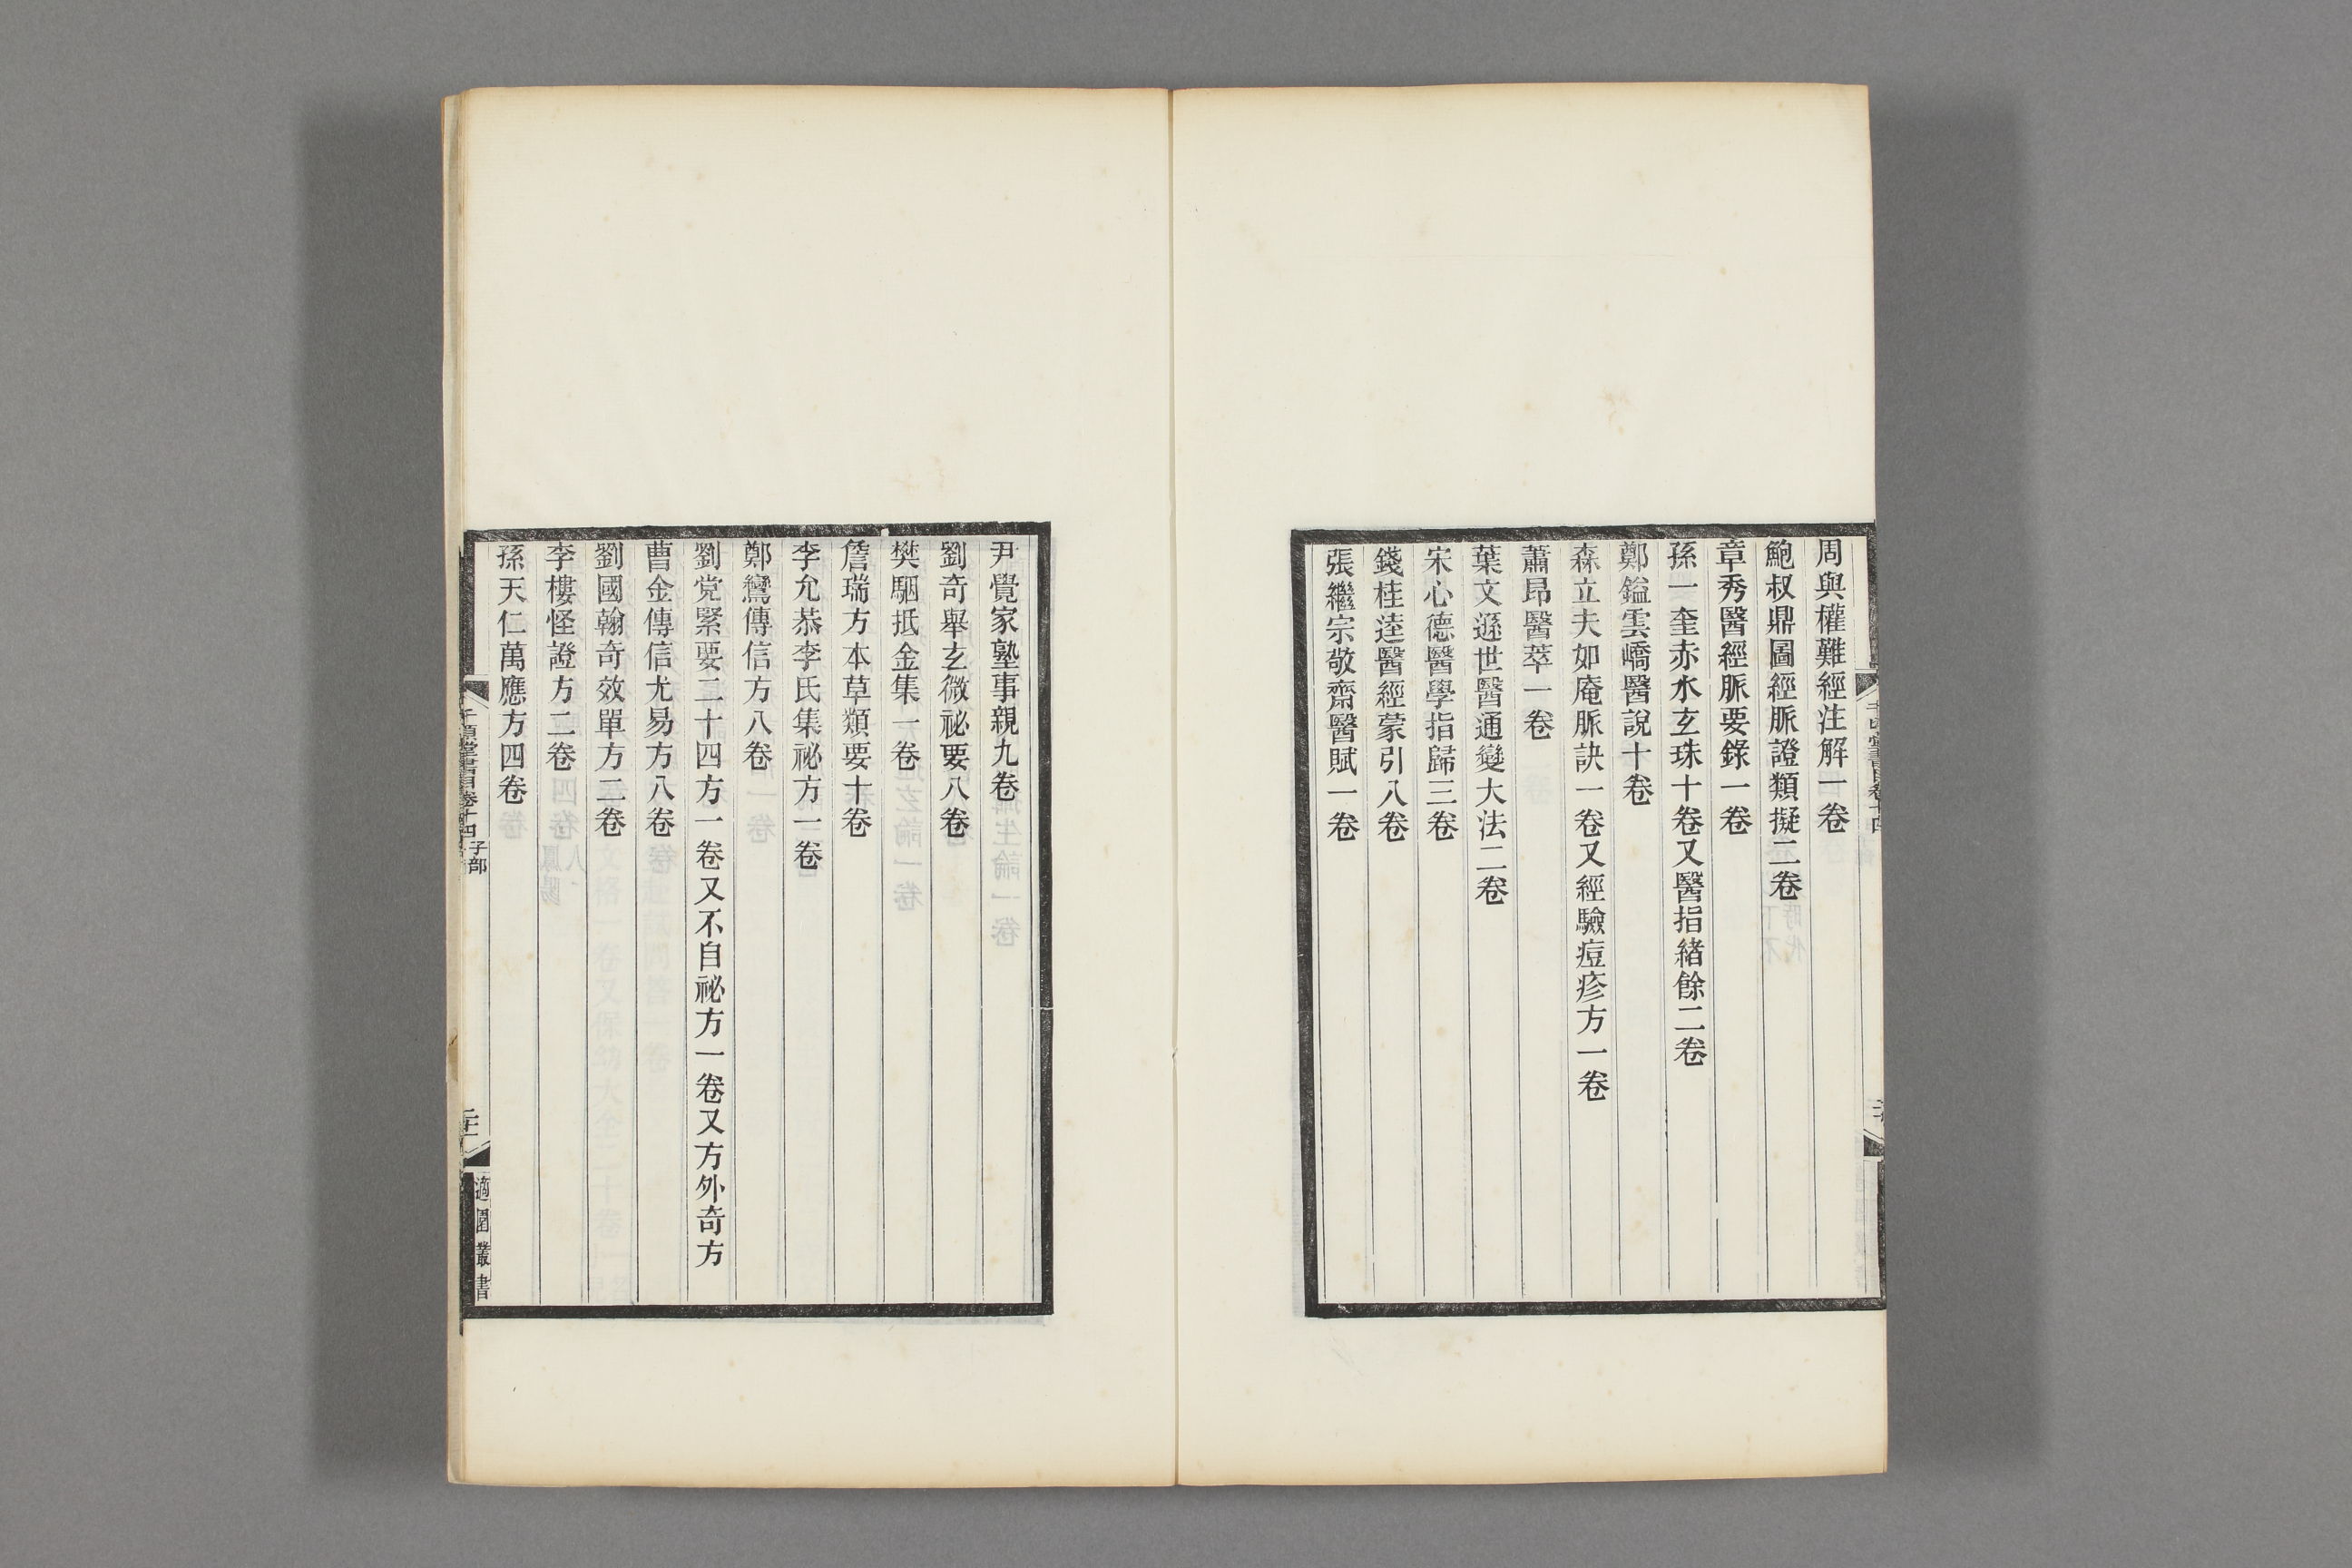 周與權難經注解一卷
鮑叔鼎圖經脈證類擬二卷
章秀醫經脈要錄一卷
孫一奎赤水玄珠十卷又醫指緒餘二卷
鄭鎰雲嶠醫說十卷
森立夫如庵脈訣一卷又經驗痘疹方一卷
蕭昂醫萃一卷
葉文遜世醫通變大法二卷
宋心德醫學指歸三卷
錢桂逵醫經蒙引八卷
張繼宗敬齋醫賦一卷
尹覺家塾事親九卷
劉奇舉玄微祕要八卷
樊駰抵金集一卷
詹瑞方本草類要十卷
李允恭李氏集祕方一卷
鄭鸞傳信方八卷
劉党緊要二十四方一卷又不自祕方一卷又方外奇方
曹金傳信尤易方八卷
劉國翰奇效單方二卷
李樓怪證方二卷
孫天仁萬應方四卷
千頃堂書目卷十四 子部
適園叢書